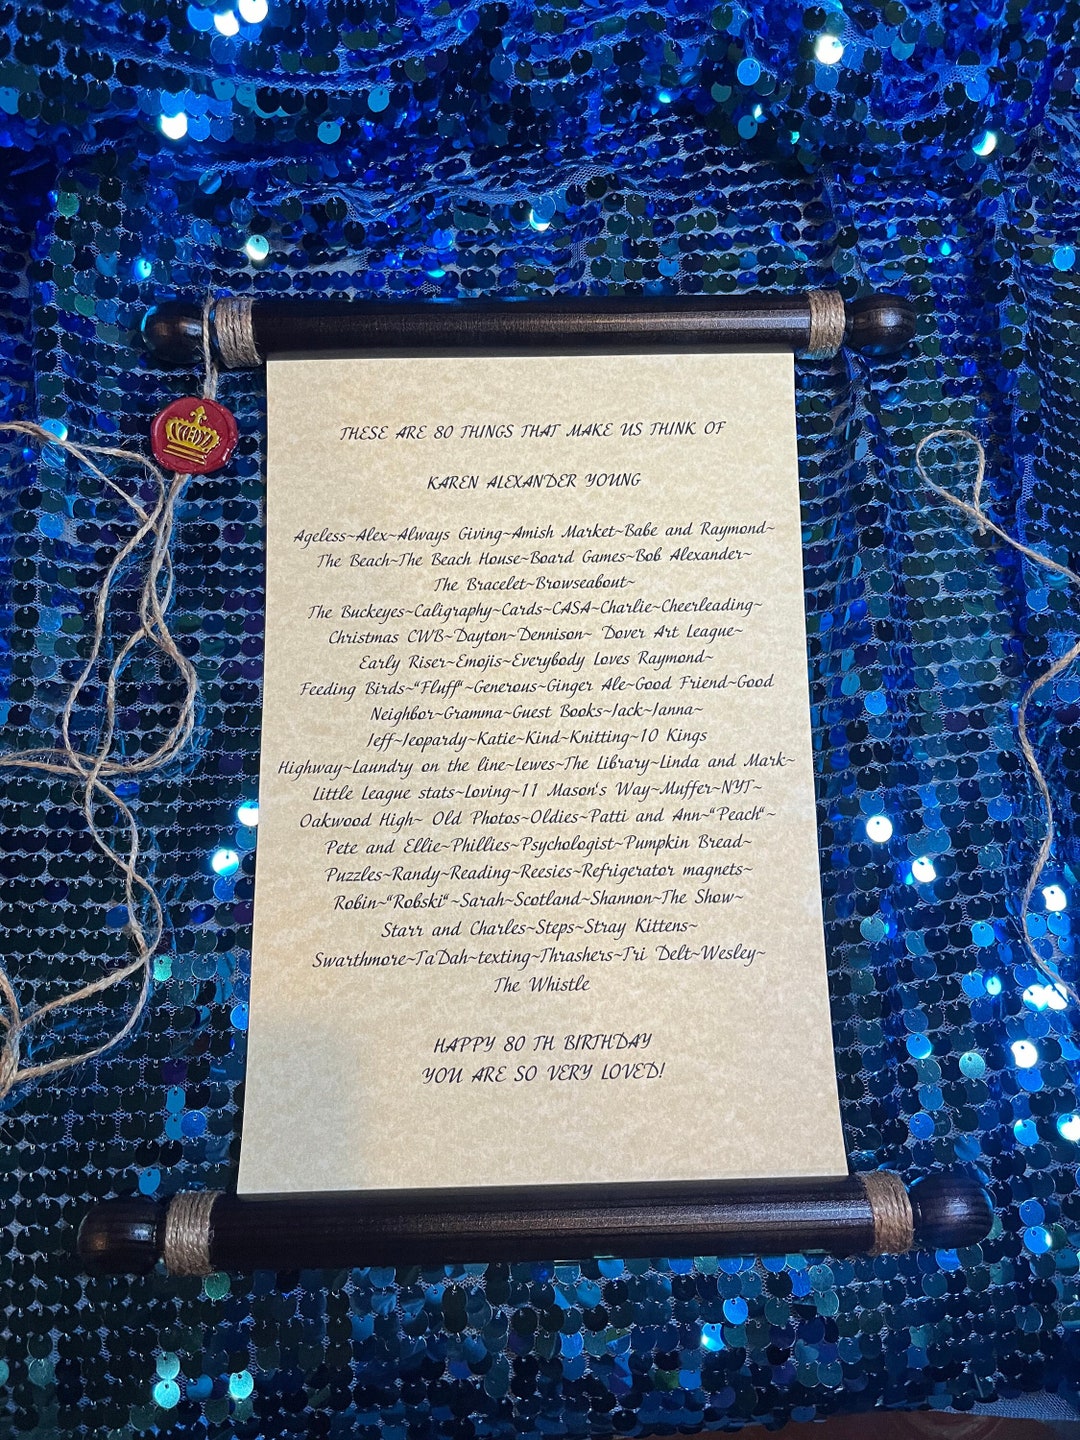 THESE ARE 80 THINGS THAT MAKE US THINK OF
KAREN ALEXANDER YOUNG
Ageless~Alex~Always Giving~Amish Market~Babe and Raymond~
The Beach~The Beach House~Board Games~Bob Alexander~
The Bracelet~Browseabout~
The Buckeyes~Caligraphy~Cards~CASA~Charlie~Cheerleading~
Christmas CWB~Dayton~Dennison~ Dover Art League~
Early Riser~Emojis~Everybody Loves Raymond~
Feeding Birds~"Fluff"~Generous~Ginger Ale~Good Friend~Good
Neighbor~Gramma~Guest Books~Jack~Janna~
Jeff~Jeopardy~Katie~Kind~Knitting~10 Kings
Highway~Laundry on the line~Lewes~The Library~Linda and Mark~
Little League stats~Loving~11 Mason's Way~Muffer~NYT~
Oakwood High~ Old Photos~Oldies~Patti and Ann~"Peach"~
Pete and Ellie~Phillies~Psychologist~Pumpkin Bread~
Puzzles~Randy~Reading~Reesies~Refrigerator magnets~
Robin~"Robski"~Sarah~Scotland~Shannon~The Show~
Starr and Charles~Steps~Stray Kittens~
Swarthmore~TaDah~texting~Thrashers~Tri Delt~Wesley~
The Whistle
HAPPY 80 TH BIRTHDAY
YOU ARE SO VERY LOVED!